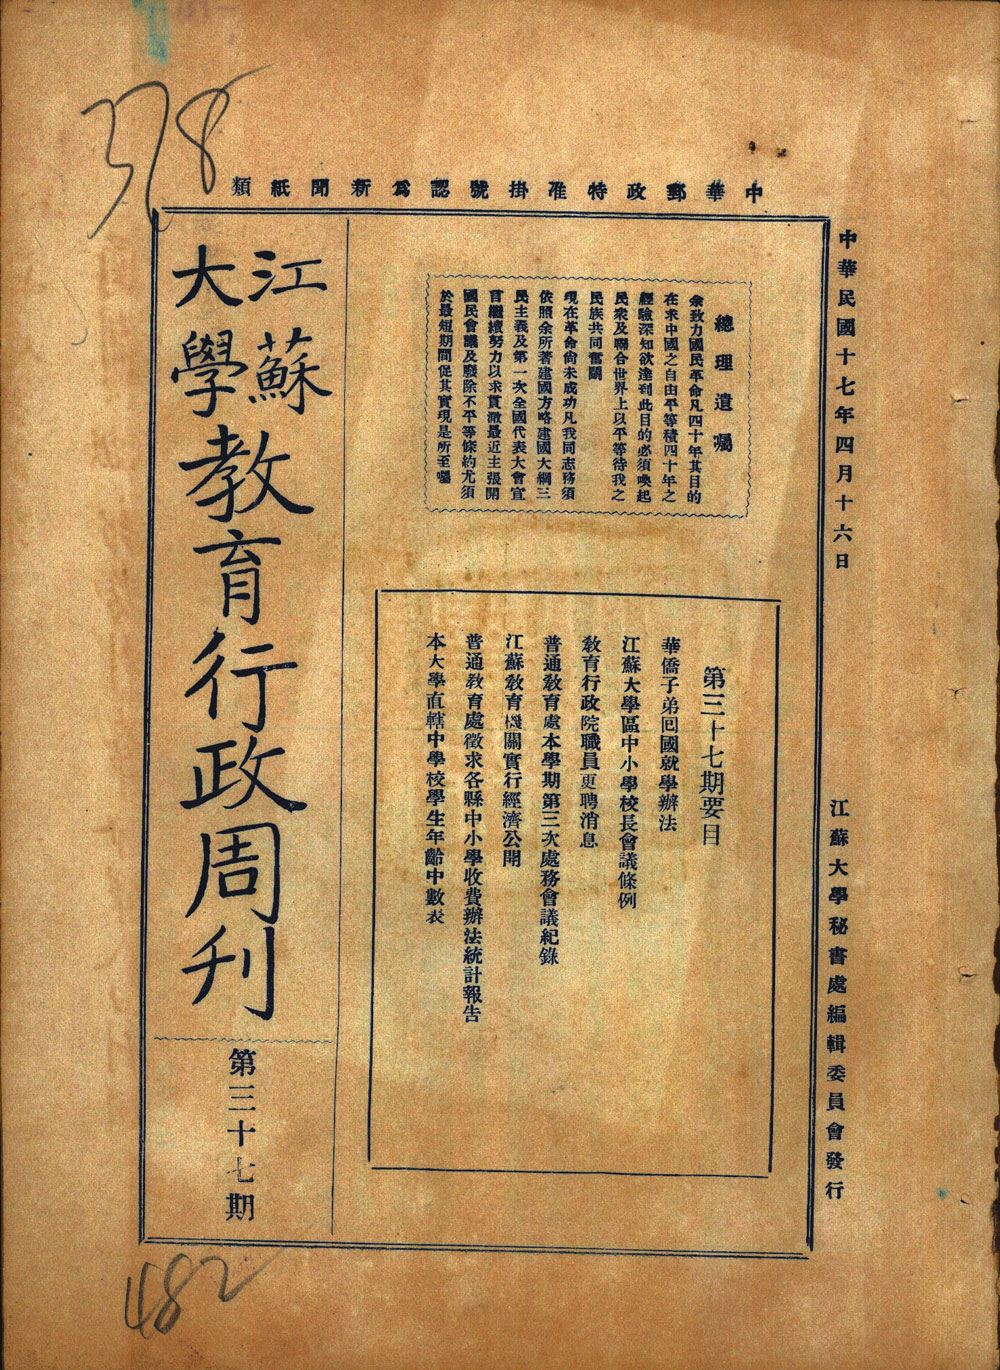 378
中華郵政特准掛號認爲新聞紙類
中華民國十七年四月十六日
江蘇大學秘書處編輯委員會發行
總理遺囑
余致力國民革命凡四十年其目的
在求中國之自由平等積四十年之
經驗深知欲達到此目的必須喚起
民衆及聯合世界上以平等待我之
民族共同奮鬭
現在革命尙未成功凡我同志務須
依照余所著建國方略建國大綱三
民主義及第一次全國代表大會宣
言繼續努力以求貫澈最近主張開
國民會議及廢除不平等條約尤須
於最短期間促其實現是所至囑
第三十七期要目
華僑子弟囘國就學辦法
江蘇大學區中小學校長會議條例
敎育行政院職員更聘消息
普通敎育處本學期第三次處務會議紀錄
江蘇敎育機關實行經濟公開
普通敎育處徵求各縣中小學收費辦法統計報告
本大學直轄中學校學生年齡中數表
江蘇
大學
教育行政周刊
第三十七期
482